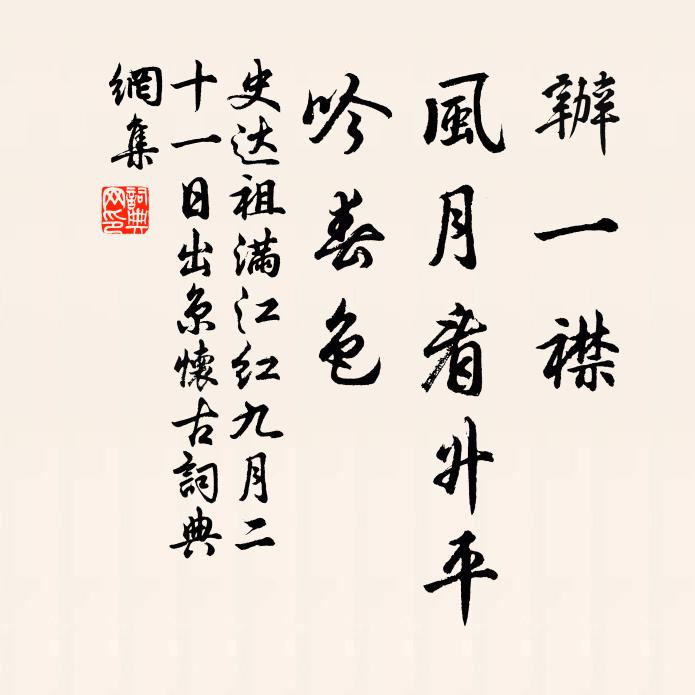 辦一襟
風月看升平
吟春色
史达祖満江红九月二
十一日出京懷古詞典
網集
詞典
网印